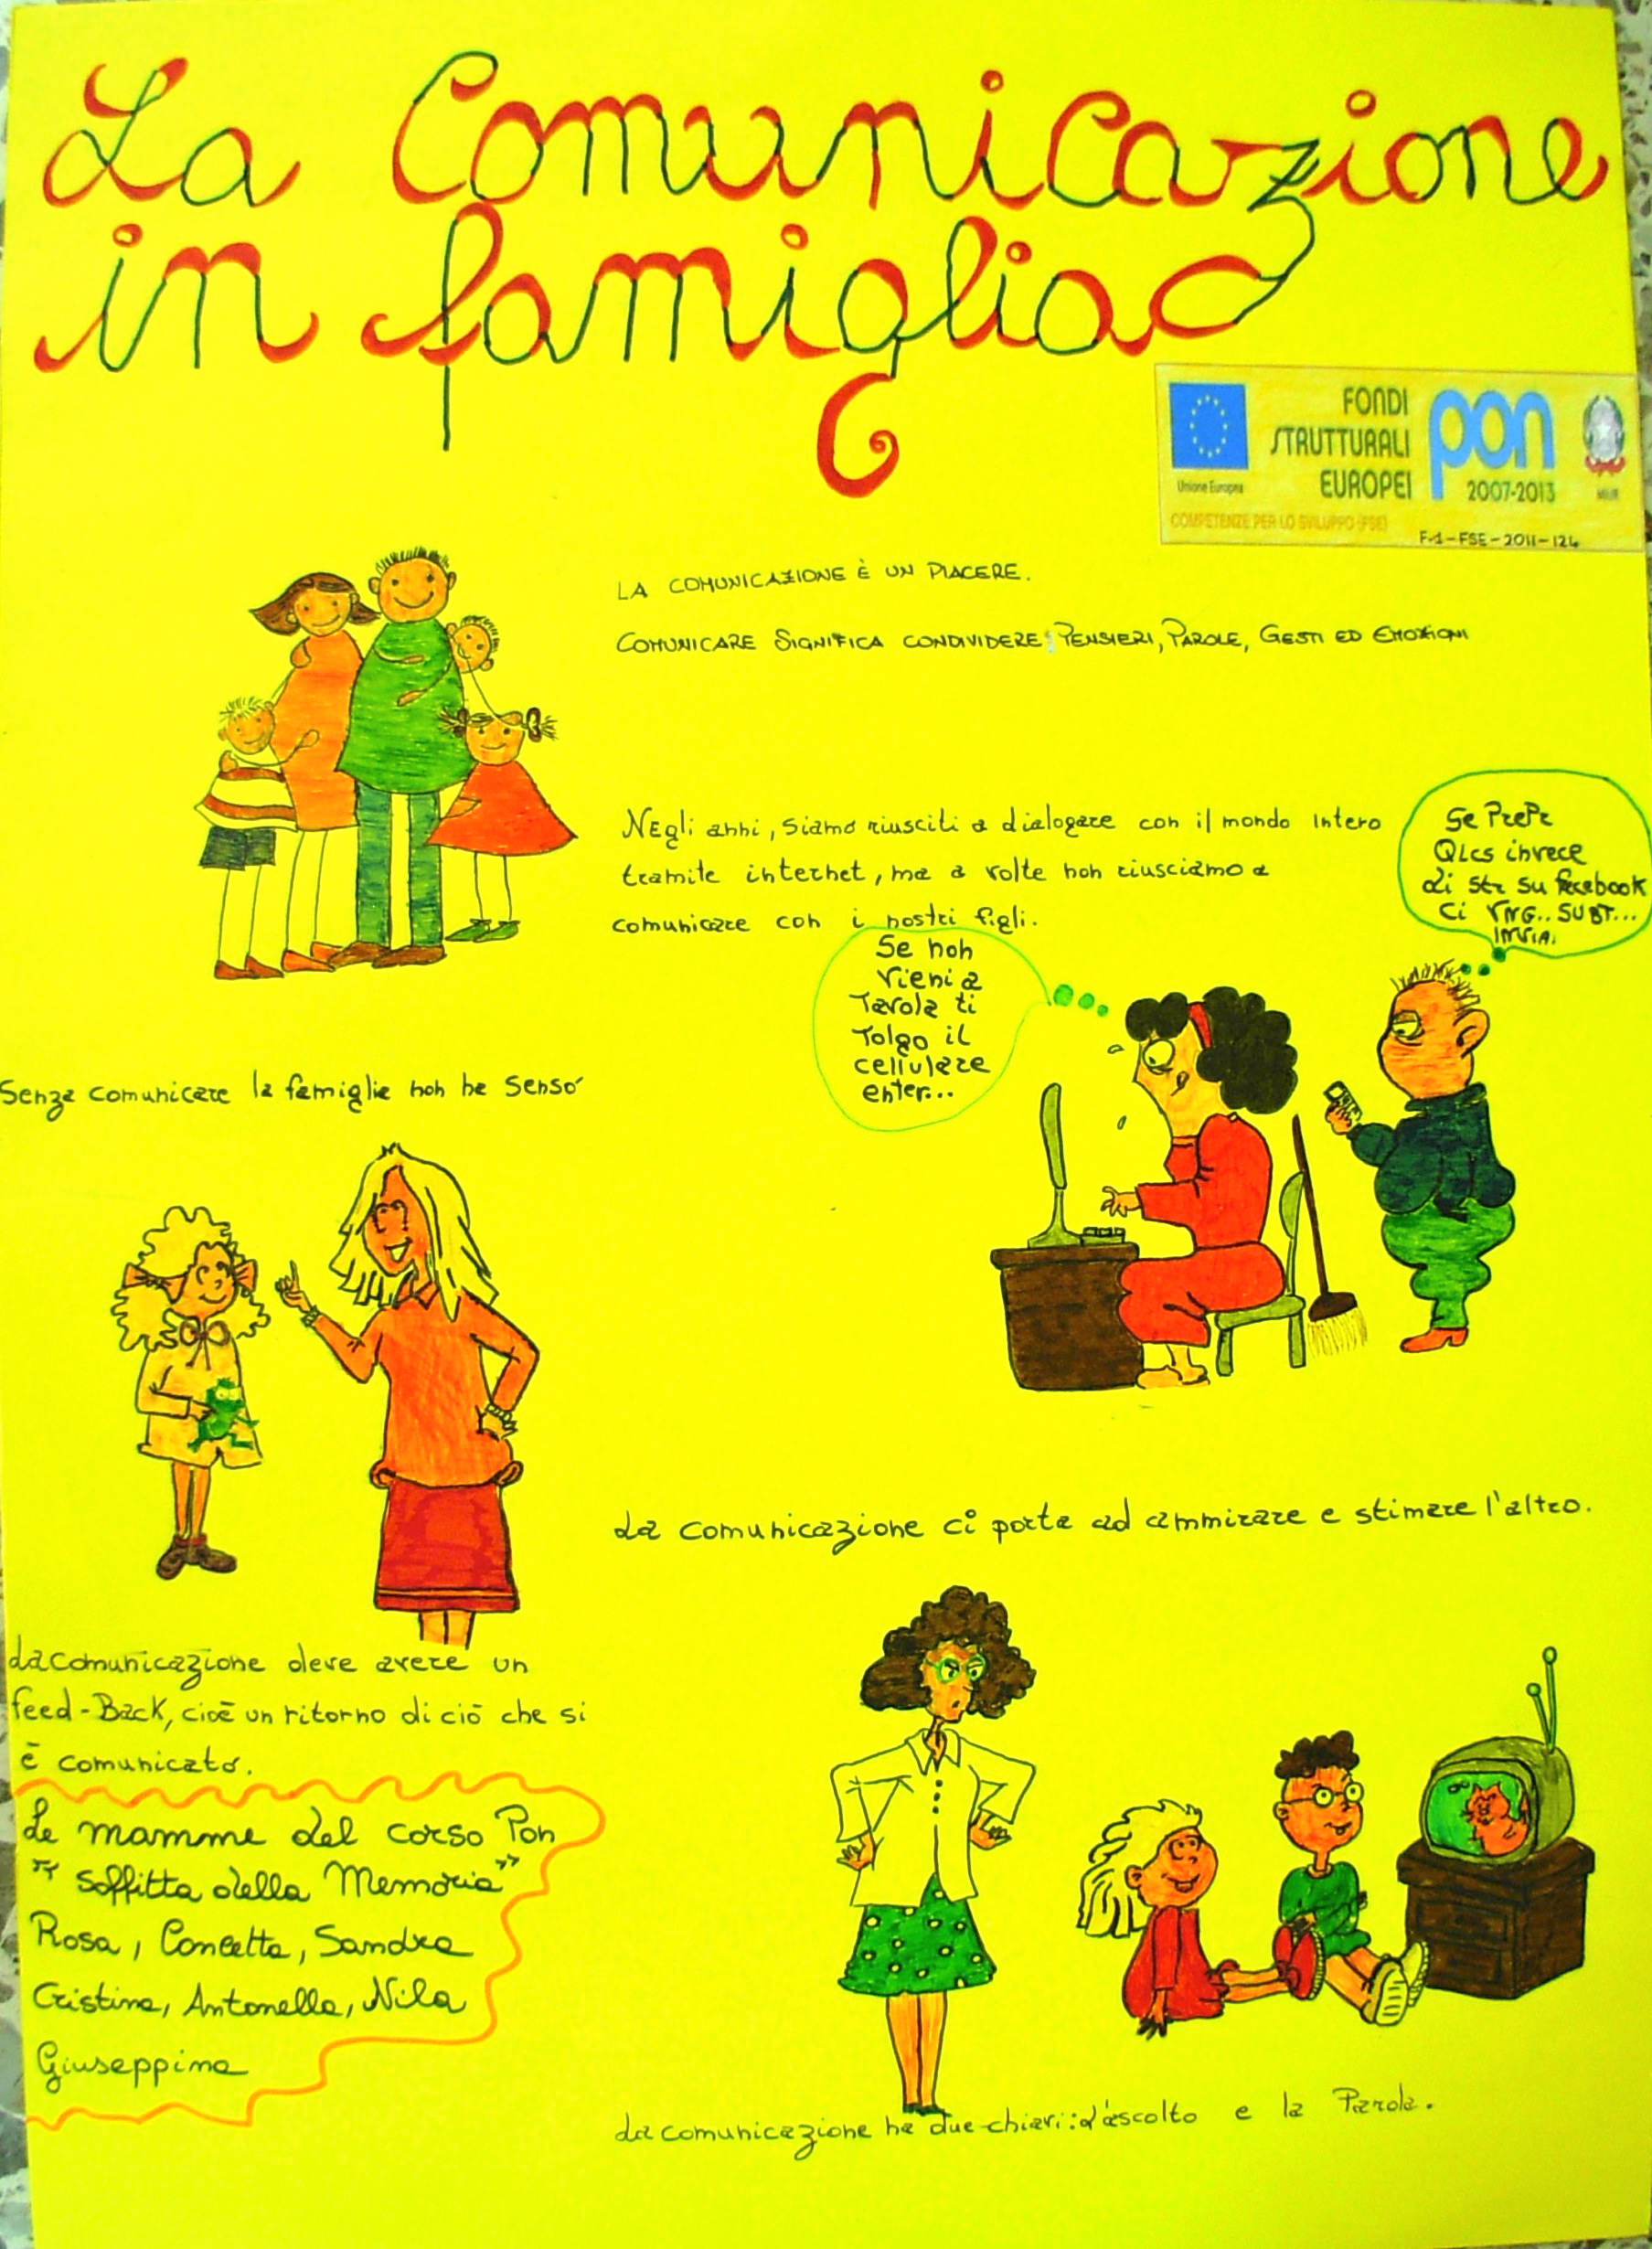 La Comunicazione
in famiglia
FONDI
STRUTTURALI
EUROPEI
pon
2007-2013
Unione Europea
MIUR
COMPETENZE PER LO SVILUPPO (FSE)
F-1-FSE-2011-124
LA COMUNICAZIONE È UN PIACERE.
COMUNICARE SIGNIFICA CONDIVIDERE: PENSIERI, PAROLE, GESTI ED EMOZIONI
Negli anni, siamo riusciti a dialogare con il mondo intero
tramite internet, ma a volte non riusciamo a
comunicare con i nostri figli.
Se PrePr
QLcs invece
di str su facebook
Ci VNG.. SUBT...
INVIA.
Se non
vieni a
Tavola ti
Tolgo il
cellulare
enter...
Senza comunicare la famiglia non ha senso
La comunicazione ci porta ad ammirare e stimare l'altro.
La comunicazione deve avere un
feed-Back, cioè un ritorno di ciò che si
è comunicato.
Le mamme del corso Pon
"Soffitta della Memoria"
Rosa, Concetta, Sandra
Cristina, Antonella, Nila
Giuseppina
La comunicazione ha due chiavi: L'ascolto e la Parola.